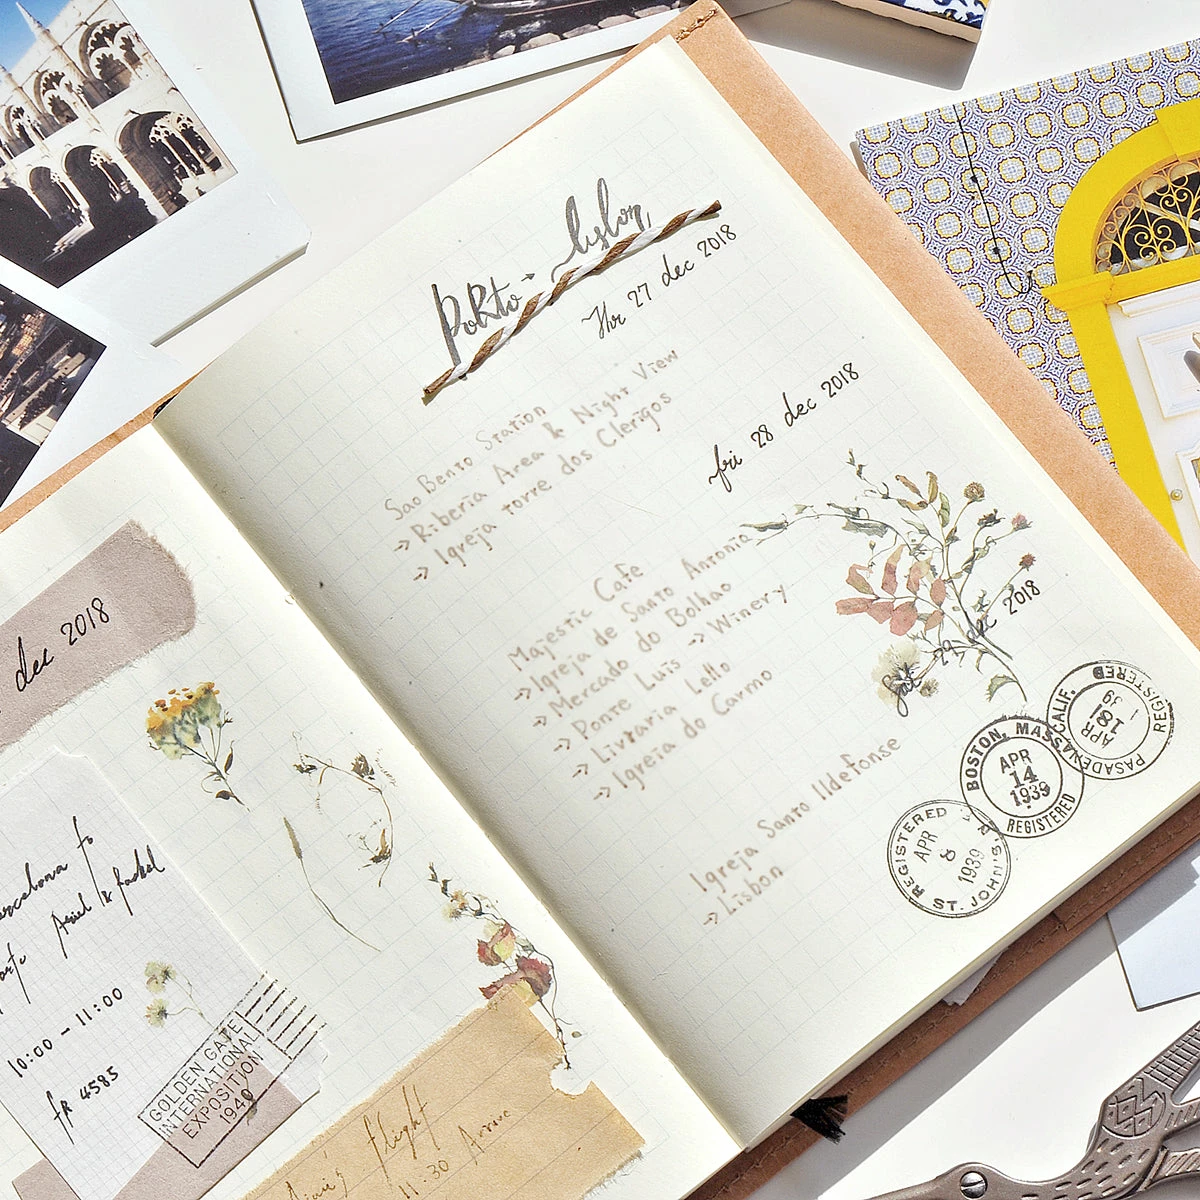 dec 2018
to
Ariel & Rachel
10:00 - 11:00
FR 4585
GOLDEN GATE
INTERNATIONAL
EXPOSITION
1940
flight
11:30 Arrive
Porto - Lisbon
Thr 27 dec 2018
Sao Bento Station
→ Riberia Area & Night View
→ Igreja torre dos Clerigos
fri 28 dec 2018
Majestic Cafe
→ Igreja de Santo Antonia
→ Mercado do Bolhao
→ Ponte Luis → Winery
→ Livraria Lello
→ Igreia do Carmo
Sat 29 dec 2018
Igreja Santo Ildefonse
→ Lisbon
REGISTERED
APR
8
1939
ST. JOHN'S.
BOSTON, MASS.
APR
14
1939
REGISTERED
PASADENA CALIF.
APR
18
1939
REGISTERED